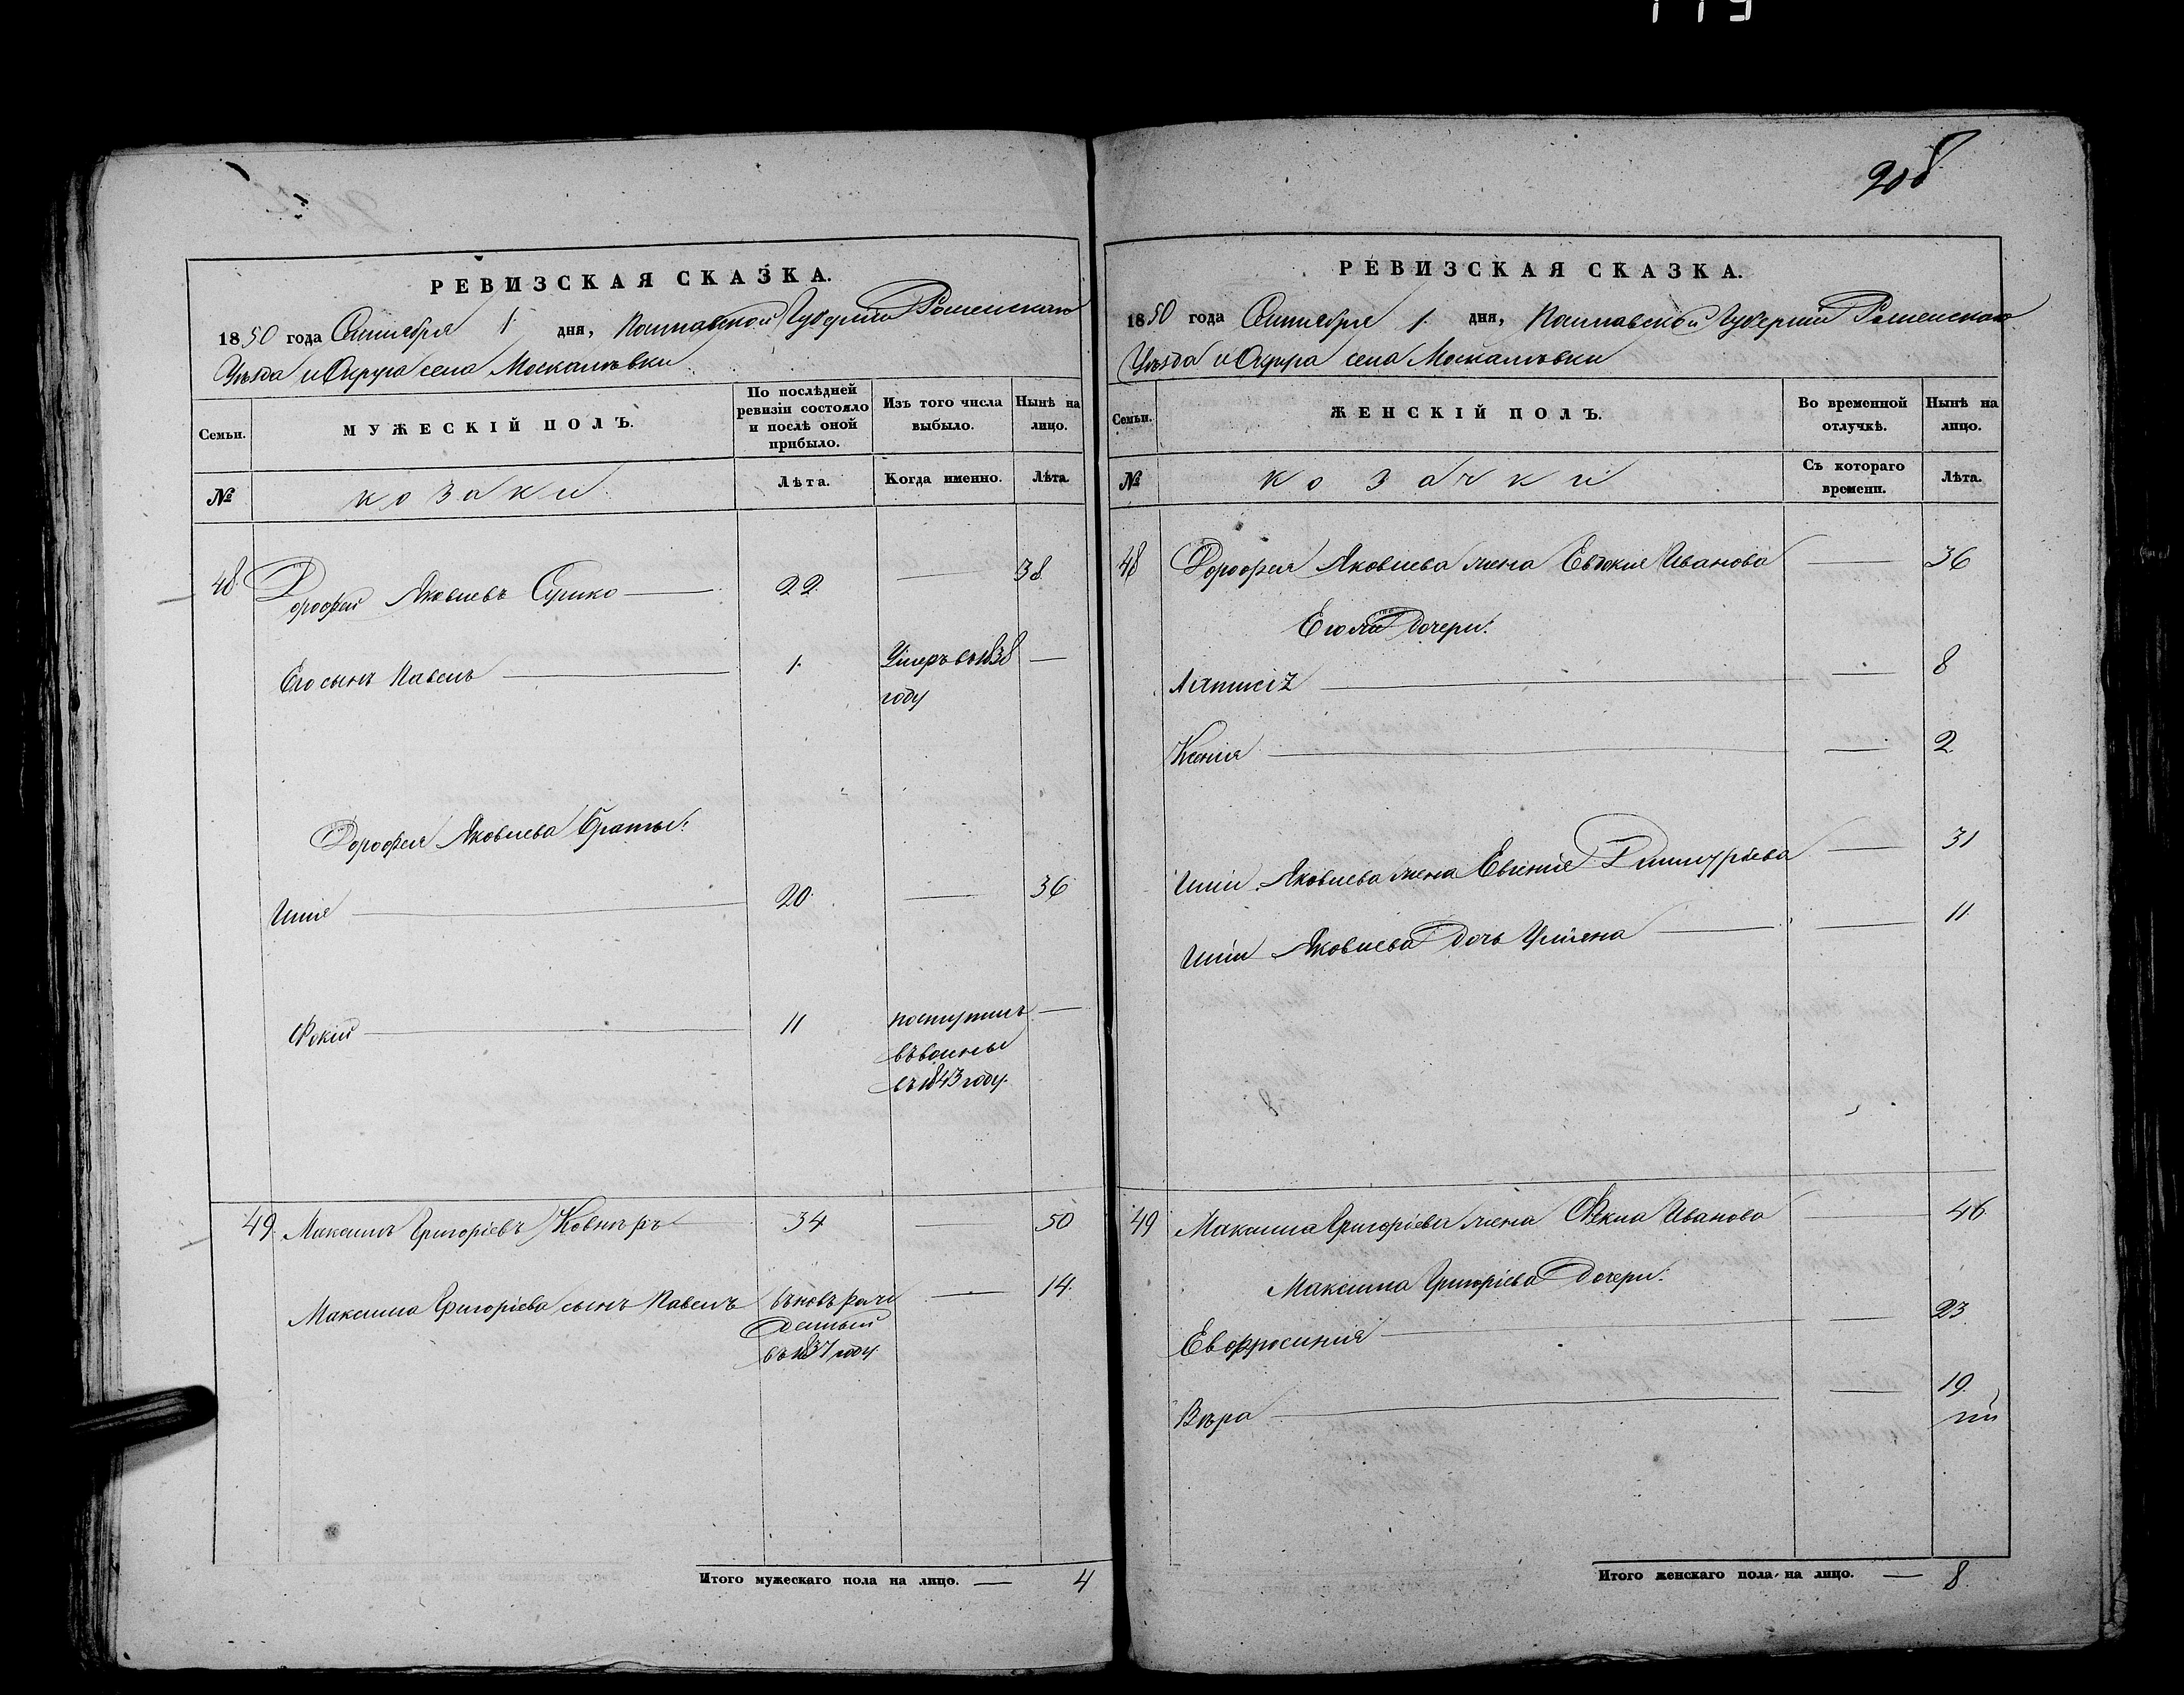 119
208
РЕВИЗСКАЯ СКАЗКА.
1850 года Сентября 1. дня, Полтавской Губерніи Роменскаго
Уѣзда и Округа села Москалѣвки
Семьи.
МУЖЕСКІЙ ПОЛЪ.
По послѣдней ревизіи состояло и послѣ оной прибыло.
Изъ того числа выбыло.
Нынѣ на лицо.
№
козаки
Лѣта.
Когда именно.
Лѣта.
48 Дорофей Яковлевъ Сушко — 22. — 38
Его сынъ Павелъ — 1. Умеръ въ 1838 —
году
Дорофея Яковлева братья:
Илія — 20. — 36
Фокій — 11 поступилъ —
въ воины
въ 1843 году.
49. Максимъ Григоріевъ Ковнѣръ — 34 — 50
Максима Григоріева сынъ Павелъ вновь рож — 14.
денный
въ 1837 году
Итого мужескаго пола на лицо. — 4
РЕВИЗСКАЯ СКАЗКА.
1850 года Сентября 1. дня, Полтавской Губерніи Роменскаго
Уѣзда и Округа села Москалѣвки
Семьи.
ЖЕНСКІЙ ПОЛЪ.
Во временной отлучкѣ.
Нынѣ на лицо.
№
козачки
Съ котораго времени.
Лѣта.
48 Дорофея Яковлева жена Евѳокия Иванова — 36
Его же дочери:
— — 8
Ксенія — — 2.
Иліи Яковлева жена Евгенія Димитріева — 31
Иліи Яковлева дочь Уліяна — — 11.
49 Максима Григоріева жена Ѳекла Иванова — 46.
Максима Григоріева дочери:
Евфросинія — — 23.
Вѣра — — 19.
Итого женскаго пола на лицо. — 8.